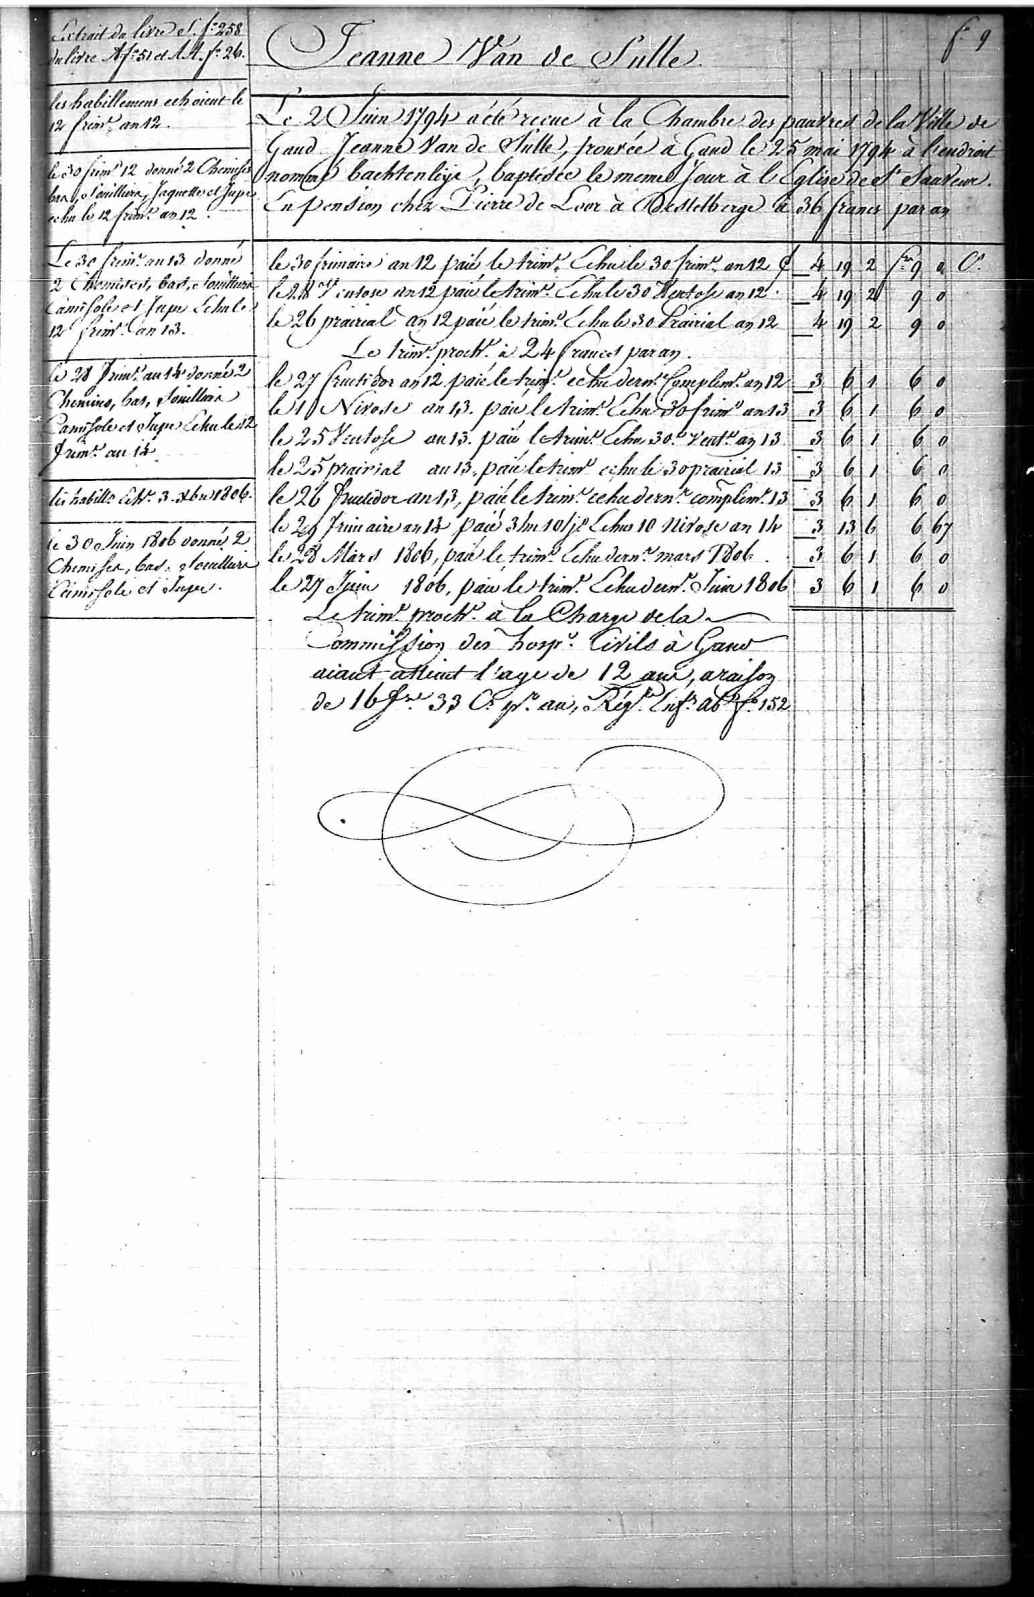 fo 9
Extrait du livre S. fo 258
du livre A fo 51 et AA. fo 26.
Jeanne Van de Sulle
les habillemens echoient le
12 frimre an 12.
Le 2 Juin 1794 a été recue à la Chambre des pauvres de la Ville de
Gand Jeanne Van de Sulle, trouvée à Gand le 25 mai 1794 à l'endroit
nommé bachten leije, baptisée le meme jour à l'Eglise de St Sauveur.
En pension chez Pierre de Loor à Destelberge à 36 francs par an
le 30 frimre 12 donné 2 Chemises
bas, Soulliers, Jaquette et Jupe
echu le 12 frimre an 12.
Le 30 frimre an 13 donné
2 Chemises, bas, Soulliers
Camisole et Jupe Echu le
12 frimre an 13.
le 28 frimre an 14 donné 2
Chemises, bas, Soulliers
Camisole et Jupe Echu le 12
frimre an 14
les habille Echt 3. Xbre 1806.
le 30 Juin 1806 donné 2
Chemises, bas, Soulliers
Camisole et Jupe.
le 30 frimaire an 12 paié le trimre Echu le 30 frimre an 12 4 19 2 frs 9 0 Cs
le 28 Ventose an 12 paié le trimre Echu le 30 Ventose an 12 4 19 2 9 0
le 26 prairial an 12 paié le trimre Echu le 30 Prairial an 12 4 19 2 9 0
Le trimre proche à 24 francs par an.
le 27 fructidor an 12 paié le trimre echu dernr Complimre an 12 3 6 1 6 0
le 11 Nivose an 13. paié le trimre Echu 30 frimre an 13 3 6 1 6 0
le 25 Ventose an 13. paié le trimre Echu 30 Vente an 13 3 6 1 6 0
le 25 prairial an 13, paié le trimre echu le 30 prairial 13 3 6 1 6 0
le 26 fructidor an 13, paié le trimre echu dernr complimre 13 3 6 1 6 0
le 29 frimaire an 14 paié 3/m 10/js Echus 10 Nivose an 14 3 13 6 6 67
le 28 Mars 1806, paié le trimre Echu dernr mars 1806. 3 6 1 6 0
le 27 Juin 1806, paié le trimre Echu dernr Juin 1806 3 6 1 6 0
Le trimre proche à la Charge de la
Commission des hospes Civils à Gand
aiant atteint l'age de 12 ans, a raison
de 16 frs 33 Cs pr an, Régre Enfs abs fo 152